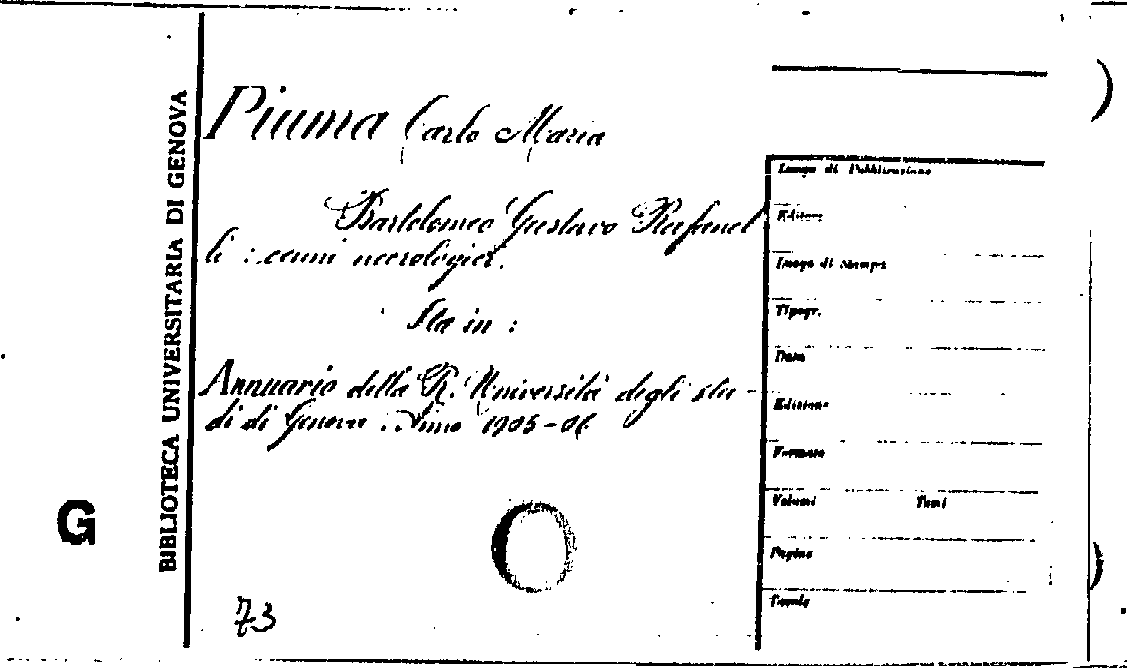 Piuma Carlo Maria
Bartolomeo Gustavo Rafanel
li : cenni necrologici.
Sta in :
Annuario della R. Università degli stu-
di di Genova : Anno 1905-06
BIBLIOTECA UNIVERSITARIA DI GENOVA
G
73
Luogo di Pubblicazione
Editore
Luogo di stampa
Tipogr.
Data
Edizione
Formato
Volumi Tomi
Pagine
Tavole